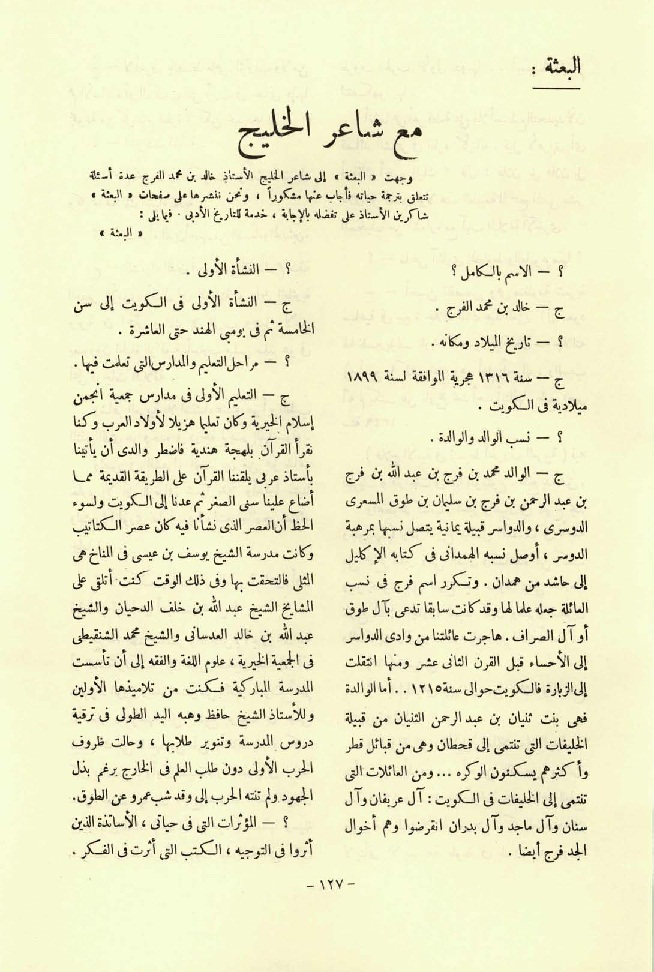 البعثة :
مع شاعر الخليج
وجهت « البعثة » إلى شاعر الخليج الأستاذ خالد بن محمد الفرج عدة أسئلة
تتعلق بترجمة حياته فأجاب عنها مشكوراً ، ونحن ننشرها على صفحات « البعثة »
شاكرين الأستاذ على تفضله بالإجابة ، خدمة للتاريخ الأدبى . فيما يلى :
« البعثة »
؟ — الاسم بالكامل ؟
ج — خالد بن محمد الفرج .
؟ — تاريخ الميلاد ومكانه .
ج — سنة ١٣١٦ هجرية الموافقة لسنة ١٨٩٩
ميلادية فى الكويت .
؟ — نسب الوالد والوالدة .
ج — الوالد محمد بن فرج بن عبد الله بن فرج
بن عبد الرحمن بن فرج بن سليمان بن طوق المسعرى
الدوسرى ، والدواسر قبيلة يمانية يتصل نسبها بمرهبة
الدوسر ، أوصل نسبه الهمدانى فى كتابه الإكليل
إلى حاشد من همدان . وتكرر اسم فرج فى نسب
العائلة جعله علما لها وقد كانت سابقا تدعى بآل طوق
أو آل الصراف . هاجرت عائلتنا من وادى الدواسر
إلى الأحساء قبل القرن الثانى عشر ومنها انتقلت
إلى الزبارة فالكويت حوالى سنة ١٢١٥ . . أما الوالدة
فهى بنت ثنيان بن عبد الرحمن الثنيان من قبيلة
الخليفات التى تنتمى إلى قحطان وهى من قبائل قطر
وأكثرهم يسكنون الوكره ... ومن العائلات التى
تنتمى إلى الخليفات فى الكويت : آل عريفان وآل
سنان وآل ماجد وآل بدران انقرضوا وهم أخوال
الجد فرج أيضا .
؟ — النشأة الأولى .
ج — النشأة الأولى فى الكويت إلى سن
الخامسة ثم فى بومبى الهند حتى العاشرة .
؟ — مراحل التعليم والمدارس التى تعلمت فيها .
ج — التعليم الأولى فى مدارس جمعية انجمن
إسلام الخيرية وكان تعليما هزيلا لأولاد العرب وكنا
نقرأ القرآن بلهجة هندية فاضطر والدى أن يأتينا
بأستاذ عربى يلقننا القرآن على الطريقة القديمة مما
أضاع علينا سنى الصغر ثم عدنا إلى الكويت ولسوء
الحظ أن العصر الذى نشأنا فيه كان عصر الكتاتيب
وكانت مدرسة الشيخ يوسف بن عيسى فى المناخ هى
المثلى فالتحقت بها وفى ذلك الوقت كنت أتلقى على
المشايخ الشيخ عبد الله بن خلف الدحيان والشيخ
عبد الله بن خالد العدسانى والشيخ محمد الشنقيطى
فى الجمعية الخيرية ، علوم اللغة والفقه إلى أن تأسست
المدرسة المباركية فكنت من تلاميذها الأولين
وللأستاذ الشيخ حافظ وهبه اليد الطولى فى ترقية
دروس المدرسة وتنوير طلابها ، وحالت ظروف
الحرب الأولى دون طلب العلم فى الخارج برغم بذل
الجهود ولم تنته الحرب إلى وقد شب عمرو عن الطوق.
؟ — المؤثرات التى فى حياتى ، الأساتذة الذين
أثروا فى التوجيه ، الكتب التى أثرت فى الفكر .
- ١٢٧ -